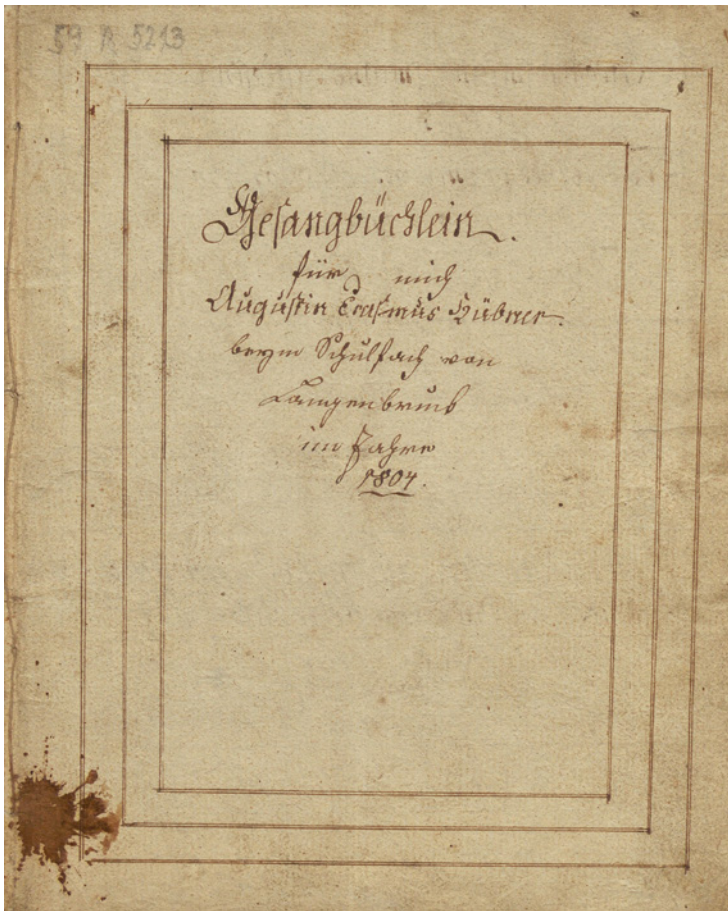 59 A 5213
Gesangbüchlein.
für mich
Augustin Erasmus Hübner.
beym Schulfach von
Langenbruk
im Jahre
1804.